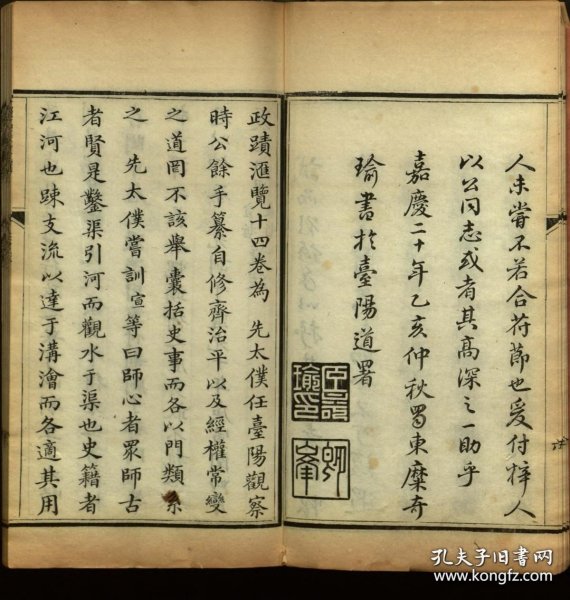 人未嘗不若合符節也爰付梓人
以公同志或者其高深之一助乎
嘉慶二十年乙亥仲秋蜀東糜奇
瑜書於臺陽道署
臣奇
瑜印
政蹟滙覽十四卷為 先太僕任臺陽觀察
時公餘手纂自修齊治平以及經權常變
之道罔不該舉囊括史事而各以門類系
之 先太僕嘗訓宣等曰師心者眾師古
者賢是鑿渠引河而觀水于渠也史籍者
江河也踈支流以達于溝澮而各適其用
孔夫子旧书网
www.kongfz.com